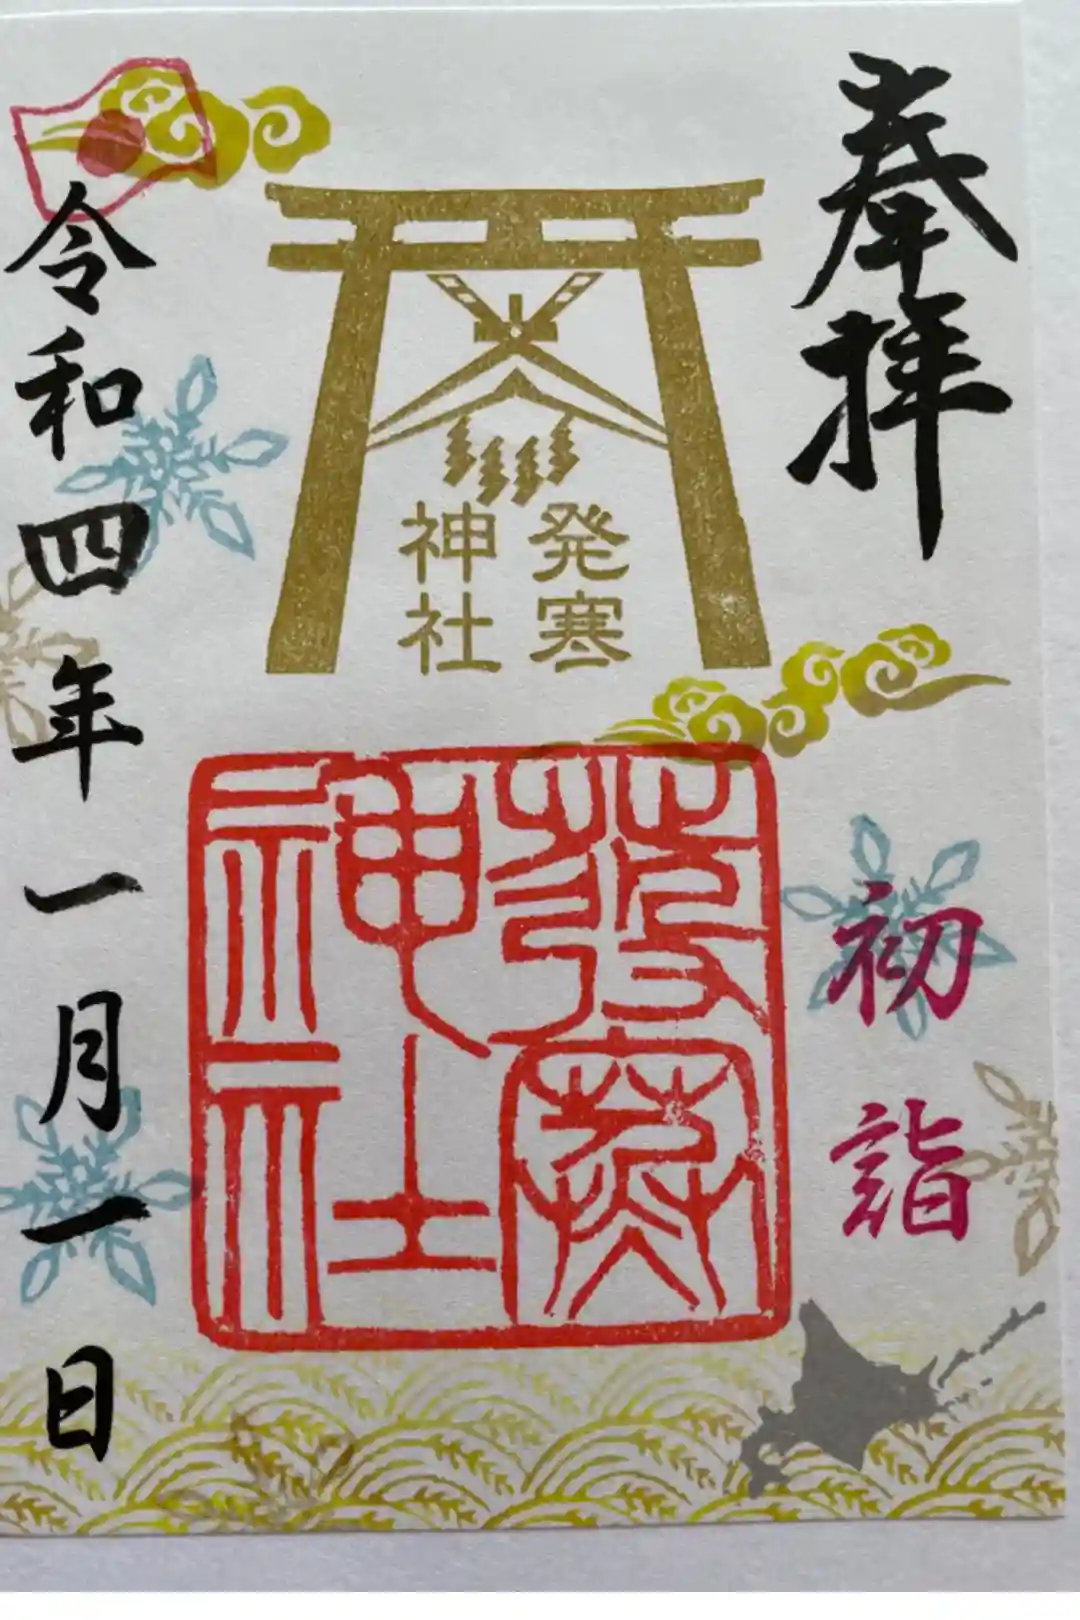 奉拝
初詣
発寒
神社
發寒
神社
令和四年一月一日